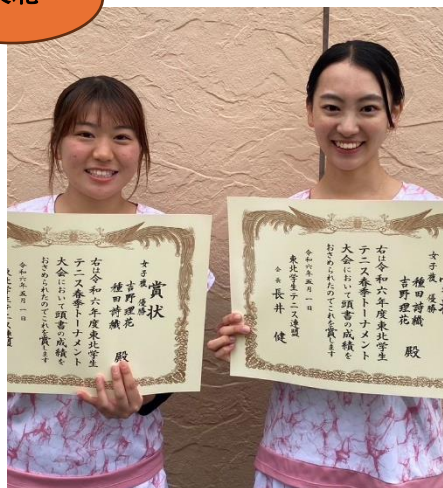 賞状
女子複 優勝
種田詩織
吉野理花 殿
右は令和六年度東北学生
テニス春季トーナメント
大会において頭書の成績を
おさめられたのでこれを賞します
令和六年五月一日
女子複 優勝
種田詩織
吉野理花 殿
右は令和六年度東北学生
テニス春季トーナメント
大会において頭書の成績を
おさめられたのでこれを賞します
令和六年五月一日
東北学生テニス連盟
会長 長井 健